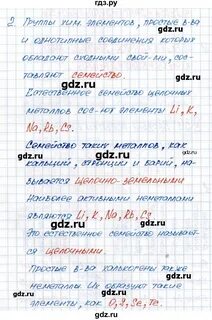 гдз.ру
2. Группы хим. элементов, простые в-ва
и однотипные соединения которых
обладают сходными свой-ми, сос-
тавляют семейство
Естественное семейство щелочных
металлов сос-ют элементы Li, K,
Na, Rb, Cs.
Семейство таких металлов, как
кальций, стронций и барий, на-
зывается щелочно-земельными
Наиболее активными неметаллами
являются Li, K, Na, Rb, Cs.
Это естественное семейство называет-
ся щелочными.
Простые в-ва халькогены также
неметаллы. Их образуют такие
элементы, как O, S, Se, Te.
gdz.ru
gdz.ru
gdz.ru
gdz.ru
gdz.ru
gdz.ru
gdz.ru
gdz.ru